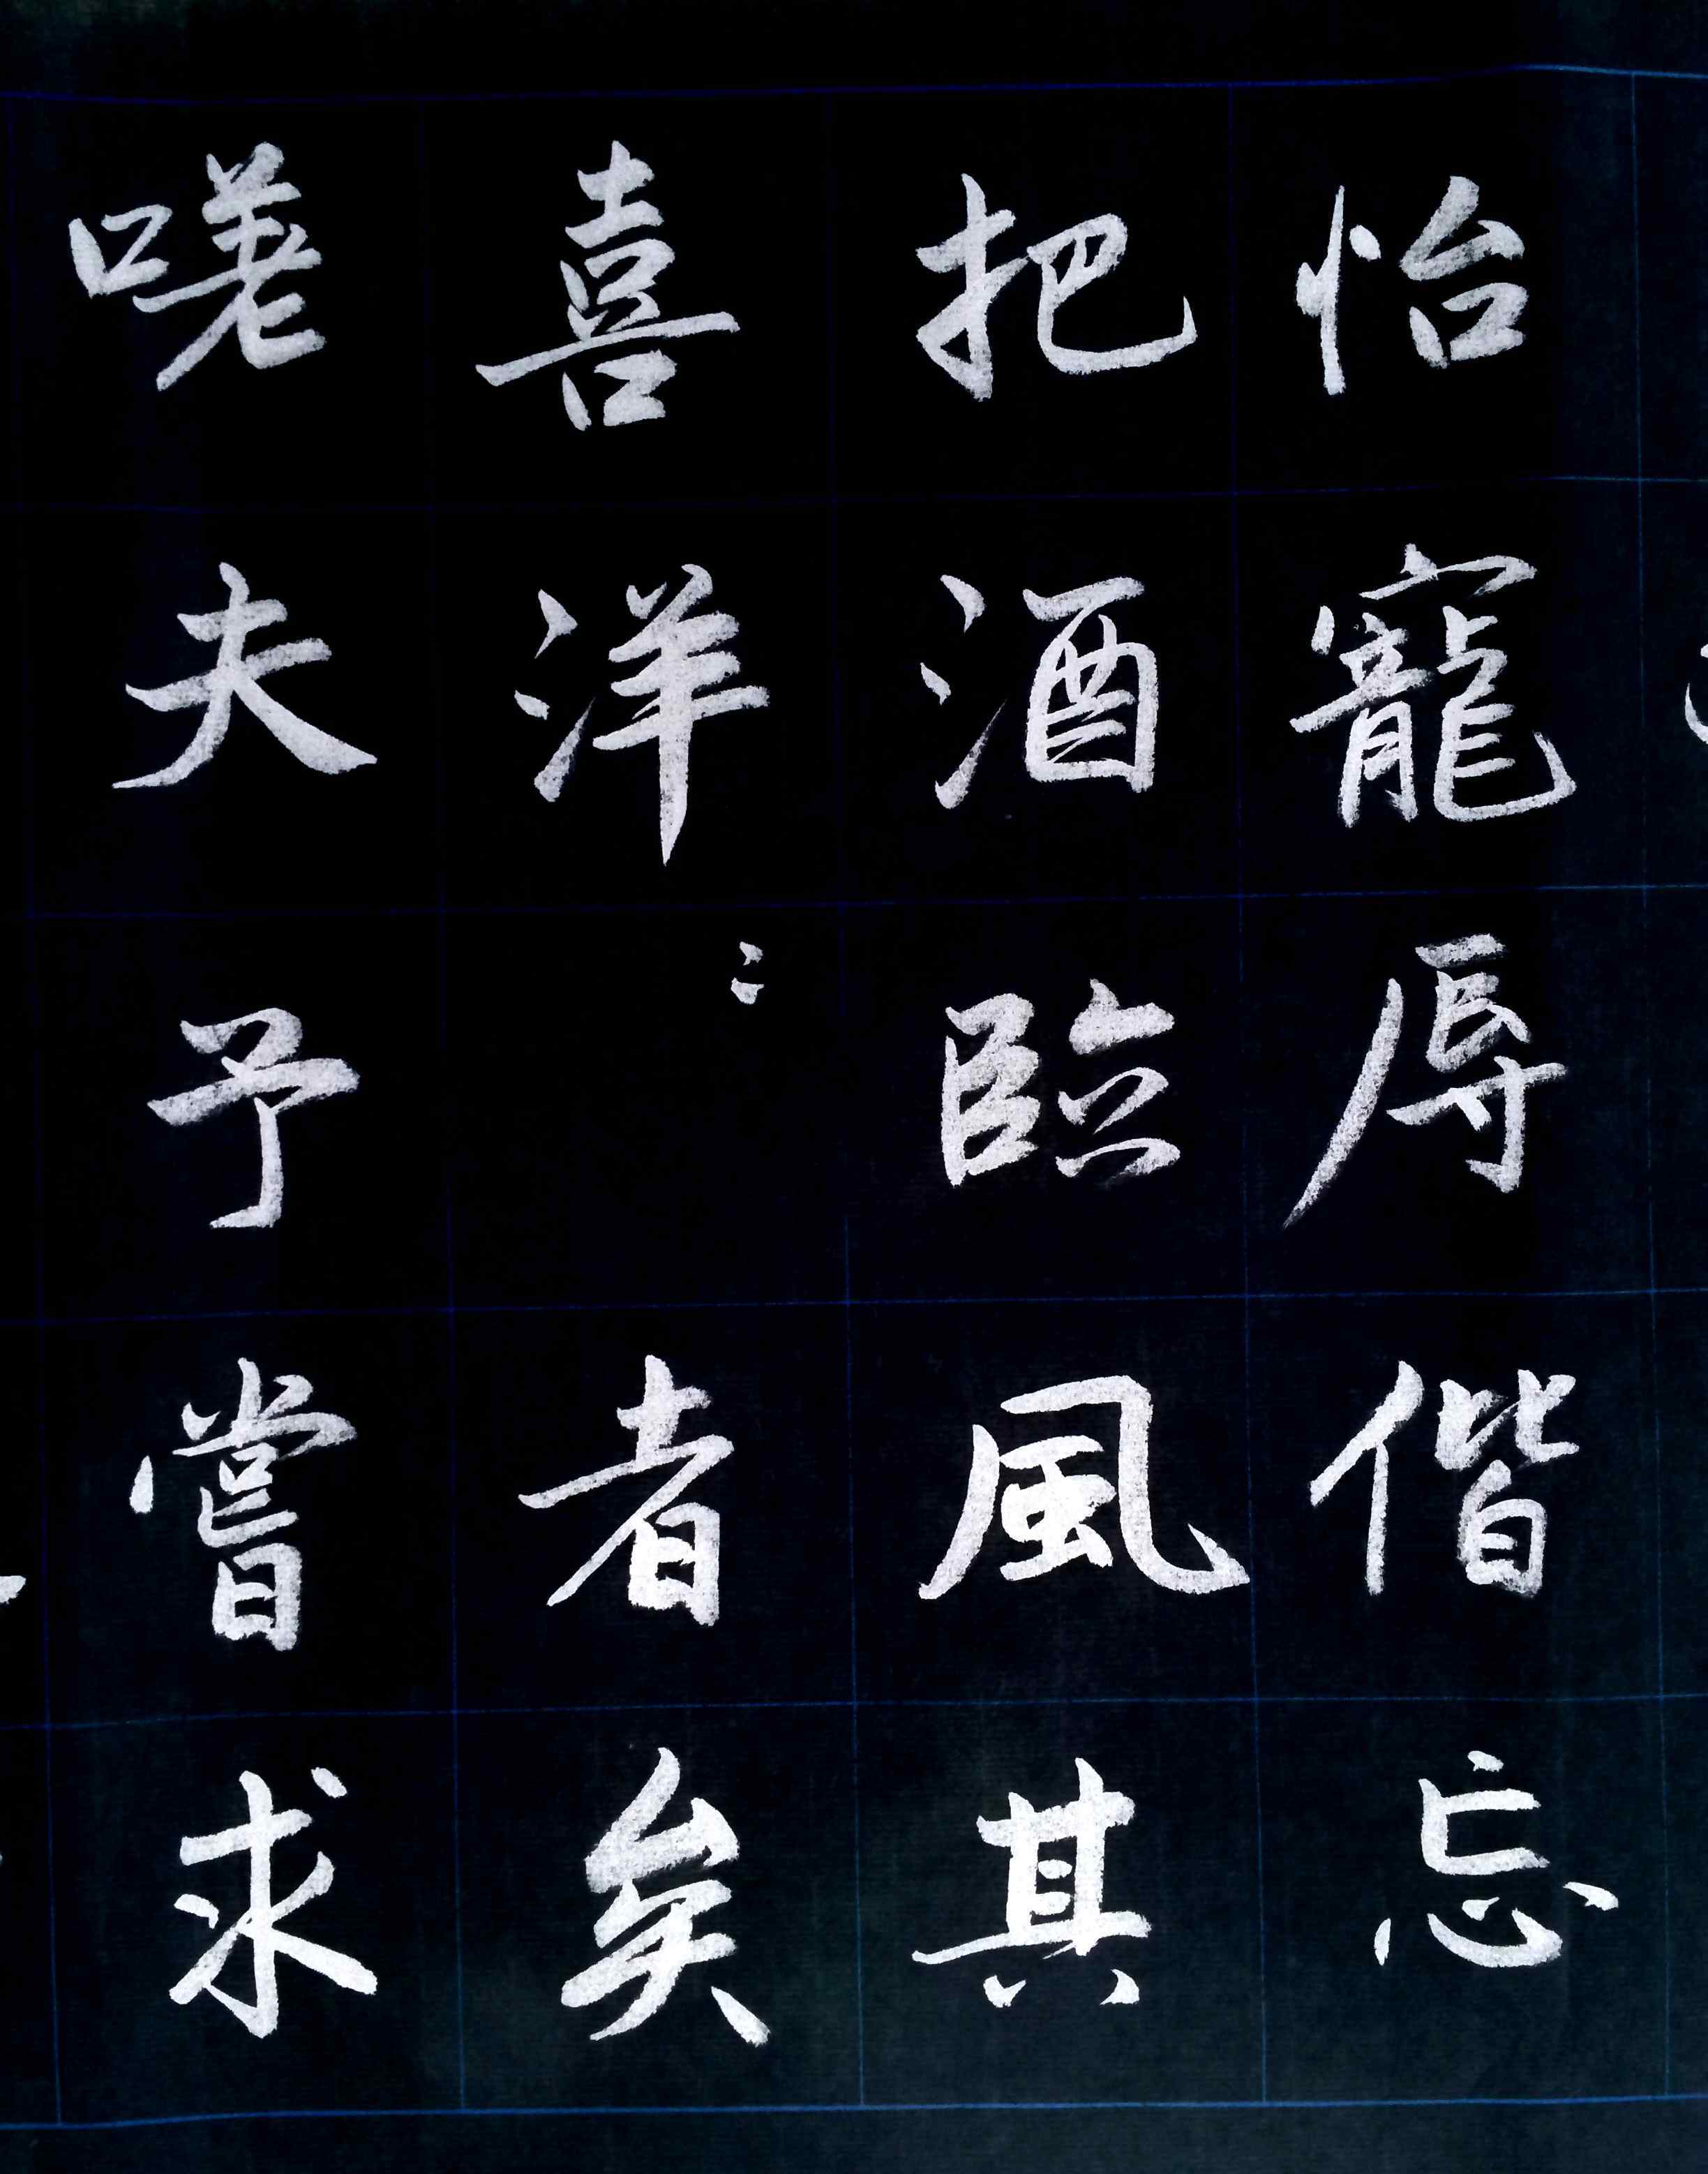 怡寵辱偕忘
把酒臨風其
喜洋〻者矣
嗟夫予嘗求